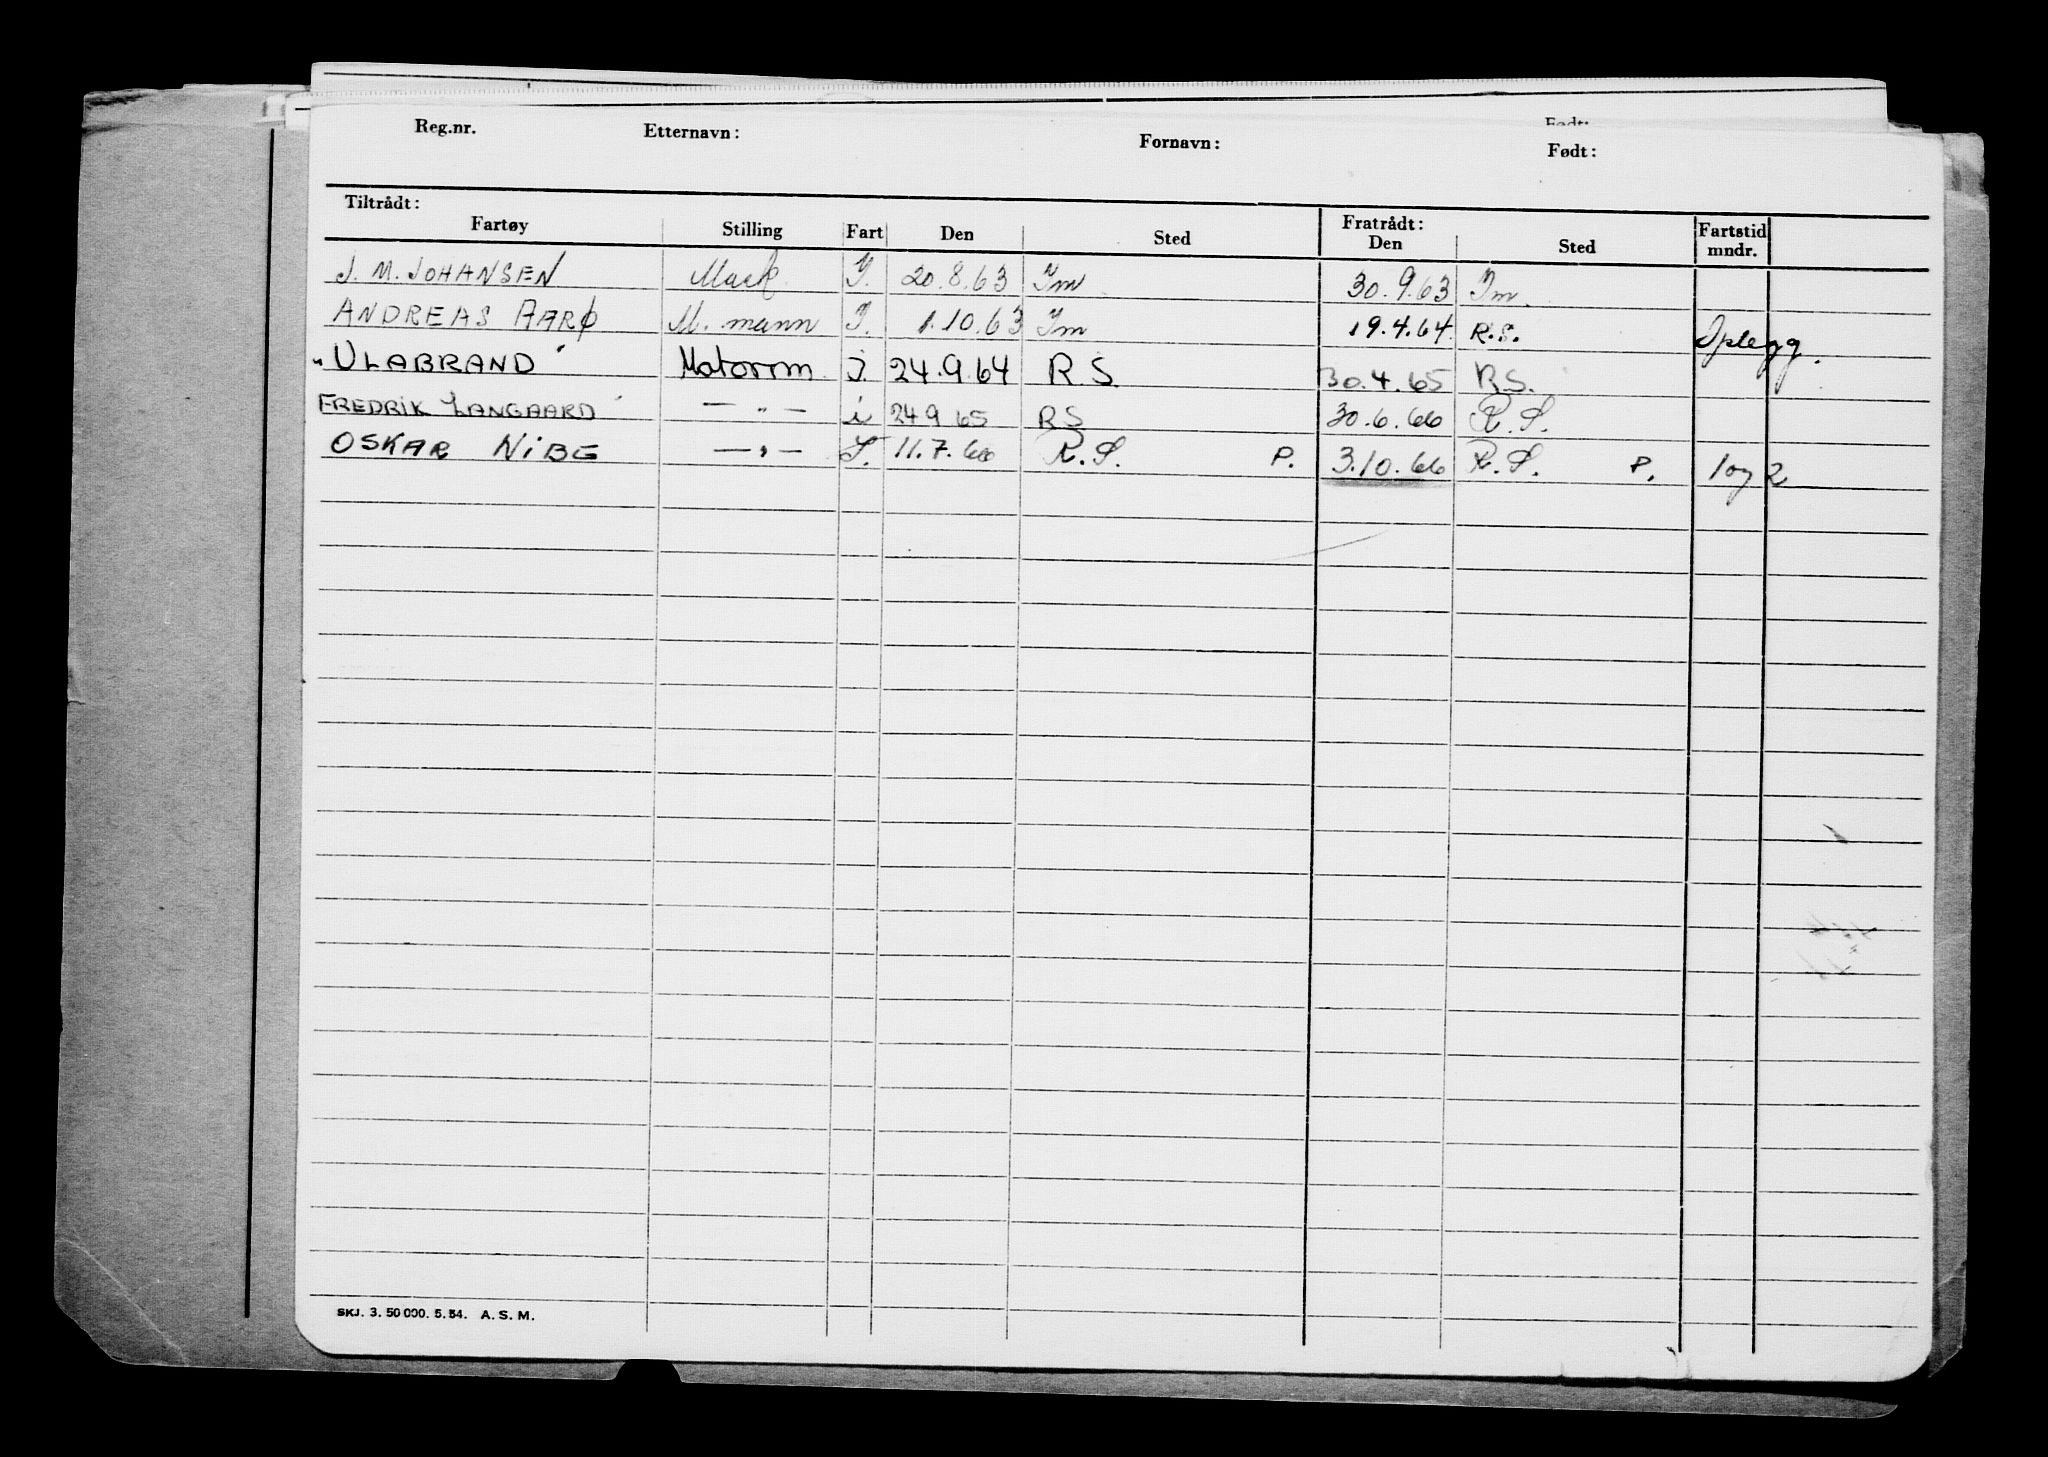 Født:
Reg.nr. Etternavn: Fornavn: Født:
Tiltrådt: Fratrådt:
Fartøy Stilling Fart Den Sted Den Sted Fartstid mndr.
J. M. JOHANSEN Mask. I. 20.8.63 Im 30.9.63 Im.
ANDREAS AARØ M. mann I. 1.10.63 Im 19.4.64 R.S. Oplegg.
"ULABRAND" Motorm I. 24.9.64 R S 30.4.65 R.S.
FREDRIK LANGAARD — " — i 24 9 65 RS 30.6.66 R.S.
OSKAR NIBE — " — I. 11.7.66 R.S. P. 3.10.66 R.S. P. 1 og 2
SKJ. 3. 50 000. 5. 54. A. S. M.